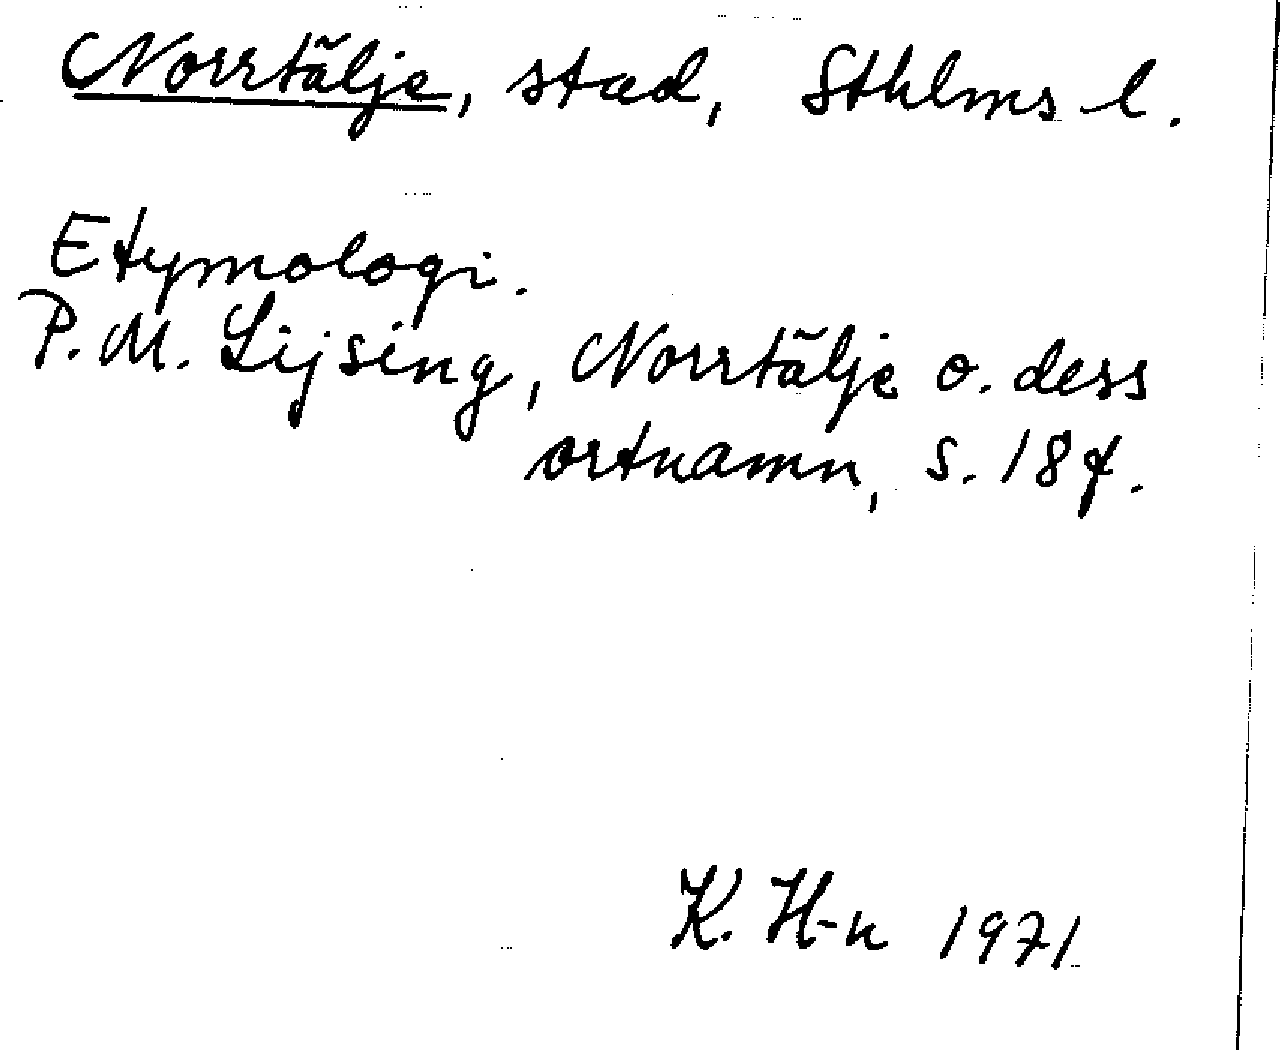 Norrtälje, stad, Sthlms l.
Etymologi.
P. M. Lijsing, Norrtälje o. dess
ortnamn, s. 18f.
K. H-n 1971